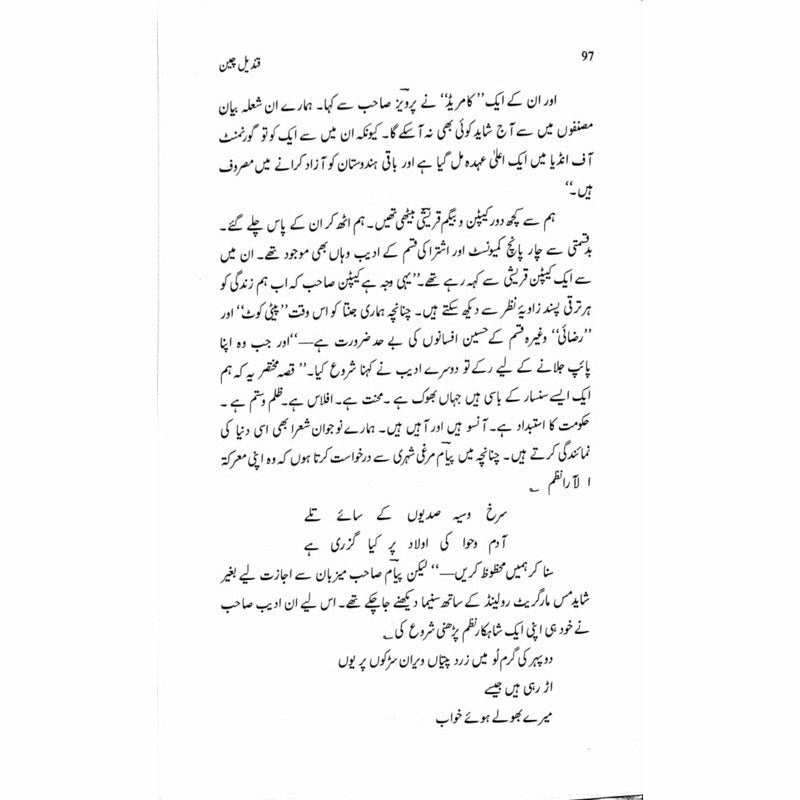 97
قندیل چین
اور ان کے ایک ”کامریڈ“ نے پرویز صاحب سے کہا۔ ہمارے ان شعلہ بیان
مصنفوں میں سے آج شاید کوئی بھی نہ آ سکے گا۔ کیونکہ ان میں سے ایک کو تو گورنمنٹ
آف انڈیا میں ایک اعلیٰ عہدہ مل گیا ہے اور باقی ہندوستان کو آزاد کرانے میں مصروف
ہیں۔“
ہم سے کچھ دور کیپٹن و بیگم قریشی بیٹھی تھیں۔ ہم اٹھ کر ان کے پاس چلے گئے۔
بدقسمتی سے چار پانچ کمیونسٹ اور اشتراکی قسم کے ادیب وہاں بھی موجود تھے۔ ان میں
سے ایک کیپٹن قریشی سے کہہ رہے تھے۔”یہی وجہ ہے کیپٹن صاحب کہ اب ہم زندگی کو
ہر ترقی پسند زاویۂ نظر سے دیکھ سکتے ہیں۔ چنانچہ ہماری جنتا کو اس وقت ”پیٹی کوٹ“ اور
”رضائی“ وغیرہ قسم کے حسین افسانوں کی بے حد ضرورت ہے—“اور جب وہ اپنا
پائپ جلانے کے لیے رکے تو دوسرے ادیب نے کہنا شروع کیا۔” قصہ مختصر یہ کہ ہم
ایک ایسے سنسار کے باسی ہیں جہاں بھوک ہے ۔محنت ہے۔ افلاس ہے۔ظلم و ستم ہے ۔
حکومت کا استبداد ہے۔ آنسو ہیں اور آہیں ہیں۔ ہمارے نوجوان شعرا بھی اسی دنیا کی
نمائندگی کرتے ہیں۔ چنانچہ میں پیام مرغی شہری سے درخواست کرتا ہوں کہ وہ اپنی معرکۃ
ا لآرا نظم ؎
سرخ وسیہ صدیوں کے سائے تلے
آدم وحوا کی اولاد پر کیا گزری ہے
سنا کر ہمیں محظوظ کریں—“ لیکن پیام صاحب میزبان سے اجازت لیے بغیر
شاید مس مارگریٹ رولینڈ کے ساتھ سنیما دیکھنے جاچکے تھے۔ اس لیے ان ادیب صاحب
نے خود ہی اپنی ایک شاہکار نظم پڑھنی شروع کی؎
دوپہر کی گرم لُو میں زرد پتیاں ویران سڑکوں پر یوں
اڑ رہی ہیں جیسے
میرے بھولے ہوئے خواب